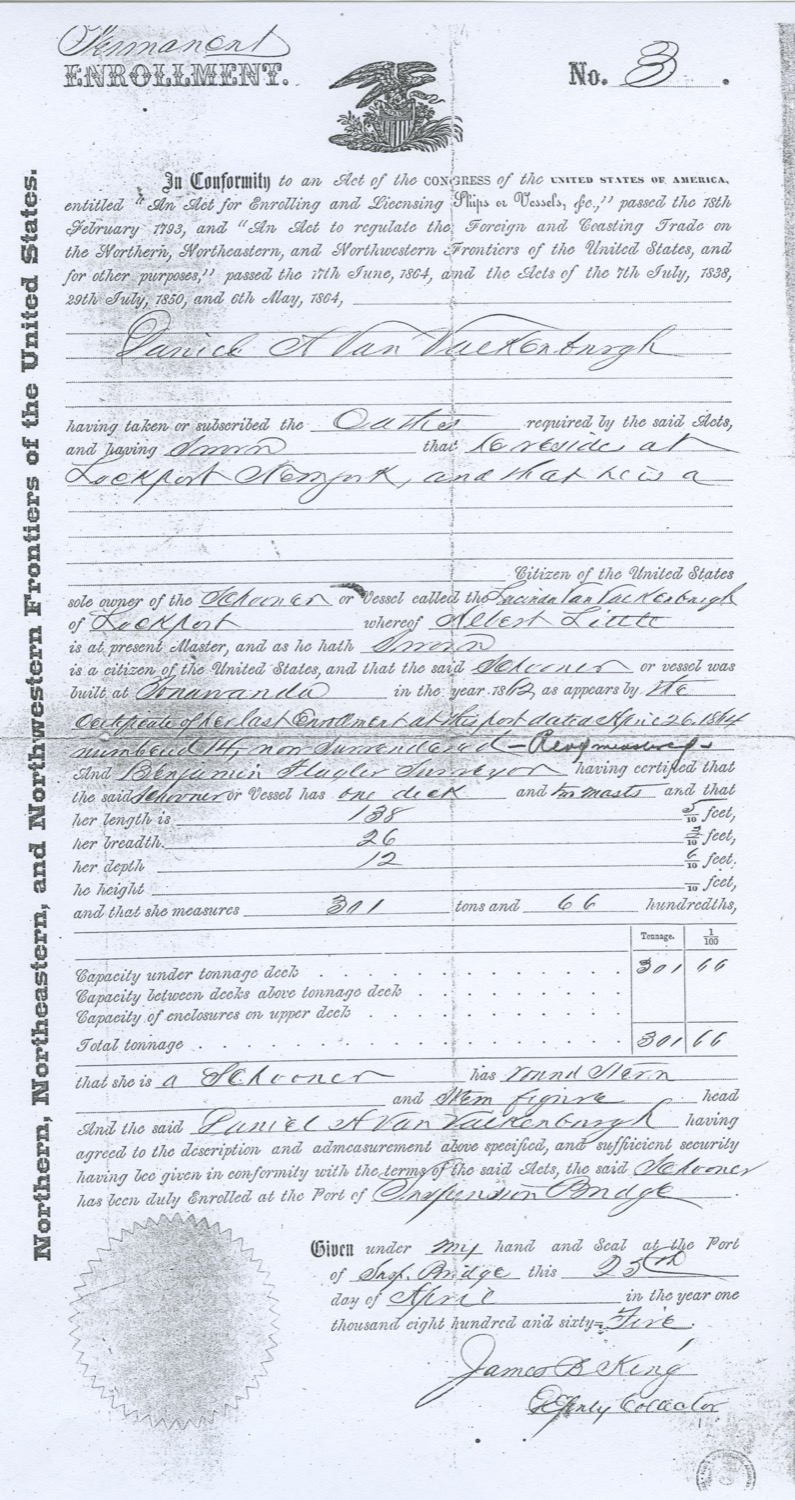 Permanent
ENROLLMENT.
No. 3.
Northern, Northeastern, and Northwestern Frontiers of the United States.
In Conformity to an Act of the CONGRESS of the UNITED STATES OF AMERICA,
entitled "An Act for Enrolling and Licensing Ships or Vessels, &c.," passed the 18th
February 1793, and "An Act to regulate the Foreign and Coasting Trade on
the Northern, Northeastern, and Northwestern Frontiers of the United States, and
for other purposes," passed the 17th June, 1864, and the Acts of the 7th July, 1838,
29th July, 1850, and 6th May, 1864,
Daniel A Van Valkenburgh
having taken or subscribed the Oathes required by the said Acts,
and having Sworn that he reside at
Lockport Newyork, and that he is a
Citizen of the United States
sole owner of the Schooner or Vessel called the Lucinda Van Valkenburgh
of Lockport whereof Albert Little
is at present Master, and as he hath Sworn
is a citizen of the United States, and that the said Schooner or vessel was
built at Tonawanda in the year 1862, as appears by the
Certificate of her last Enrollment at this port dated April 26. 1864
numbered 14, now Surrendered -
And Benjamin Flagler Surveyor having certified that
the said Schooner or Vessel has one deck and two masts and that
her length is 138 5/10 feet,
her breadth. 26 /10 feet,
her depth 12 6/10 feet.
he height /10 feet,
and that she measures 301 tons and 66 hundredths,
Tonnage. 1/100
Capacity under tonnage deck 301 66
Capacity between decks above tonnage deck
Capacity of enclosures on upper deck
Total tonnage 301 66
that she is a Schooner has round Stern
and Stem figure head
And the said Daniel A Van Valkenburgh having
agreed to the description and admeasurement above specified, and sufficient security
having bee given in conformity with the terms of the said Acts, the said Schooner
has been duly Enrolled at the Port of Suspension Bridge.
Given under my hand and Seal at the Port
of Susp. Bridge this 25th
day of April in the year one
thousand eight hundred and sixty-Five.
James B King
Deputy Collector